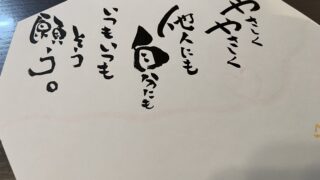 やさしく
やさしく
他人にも
自分にも
いつもいつも
そう
願う。